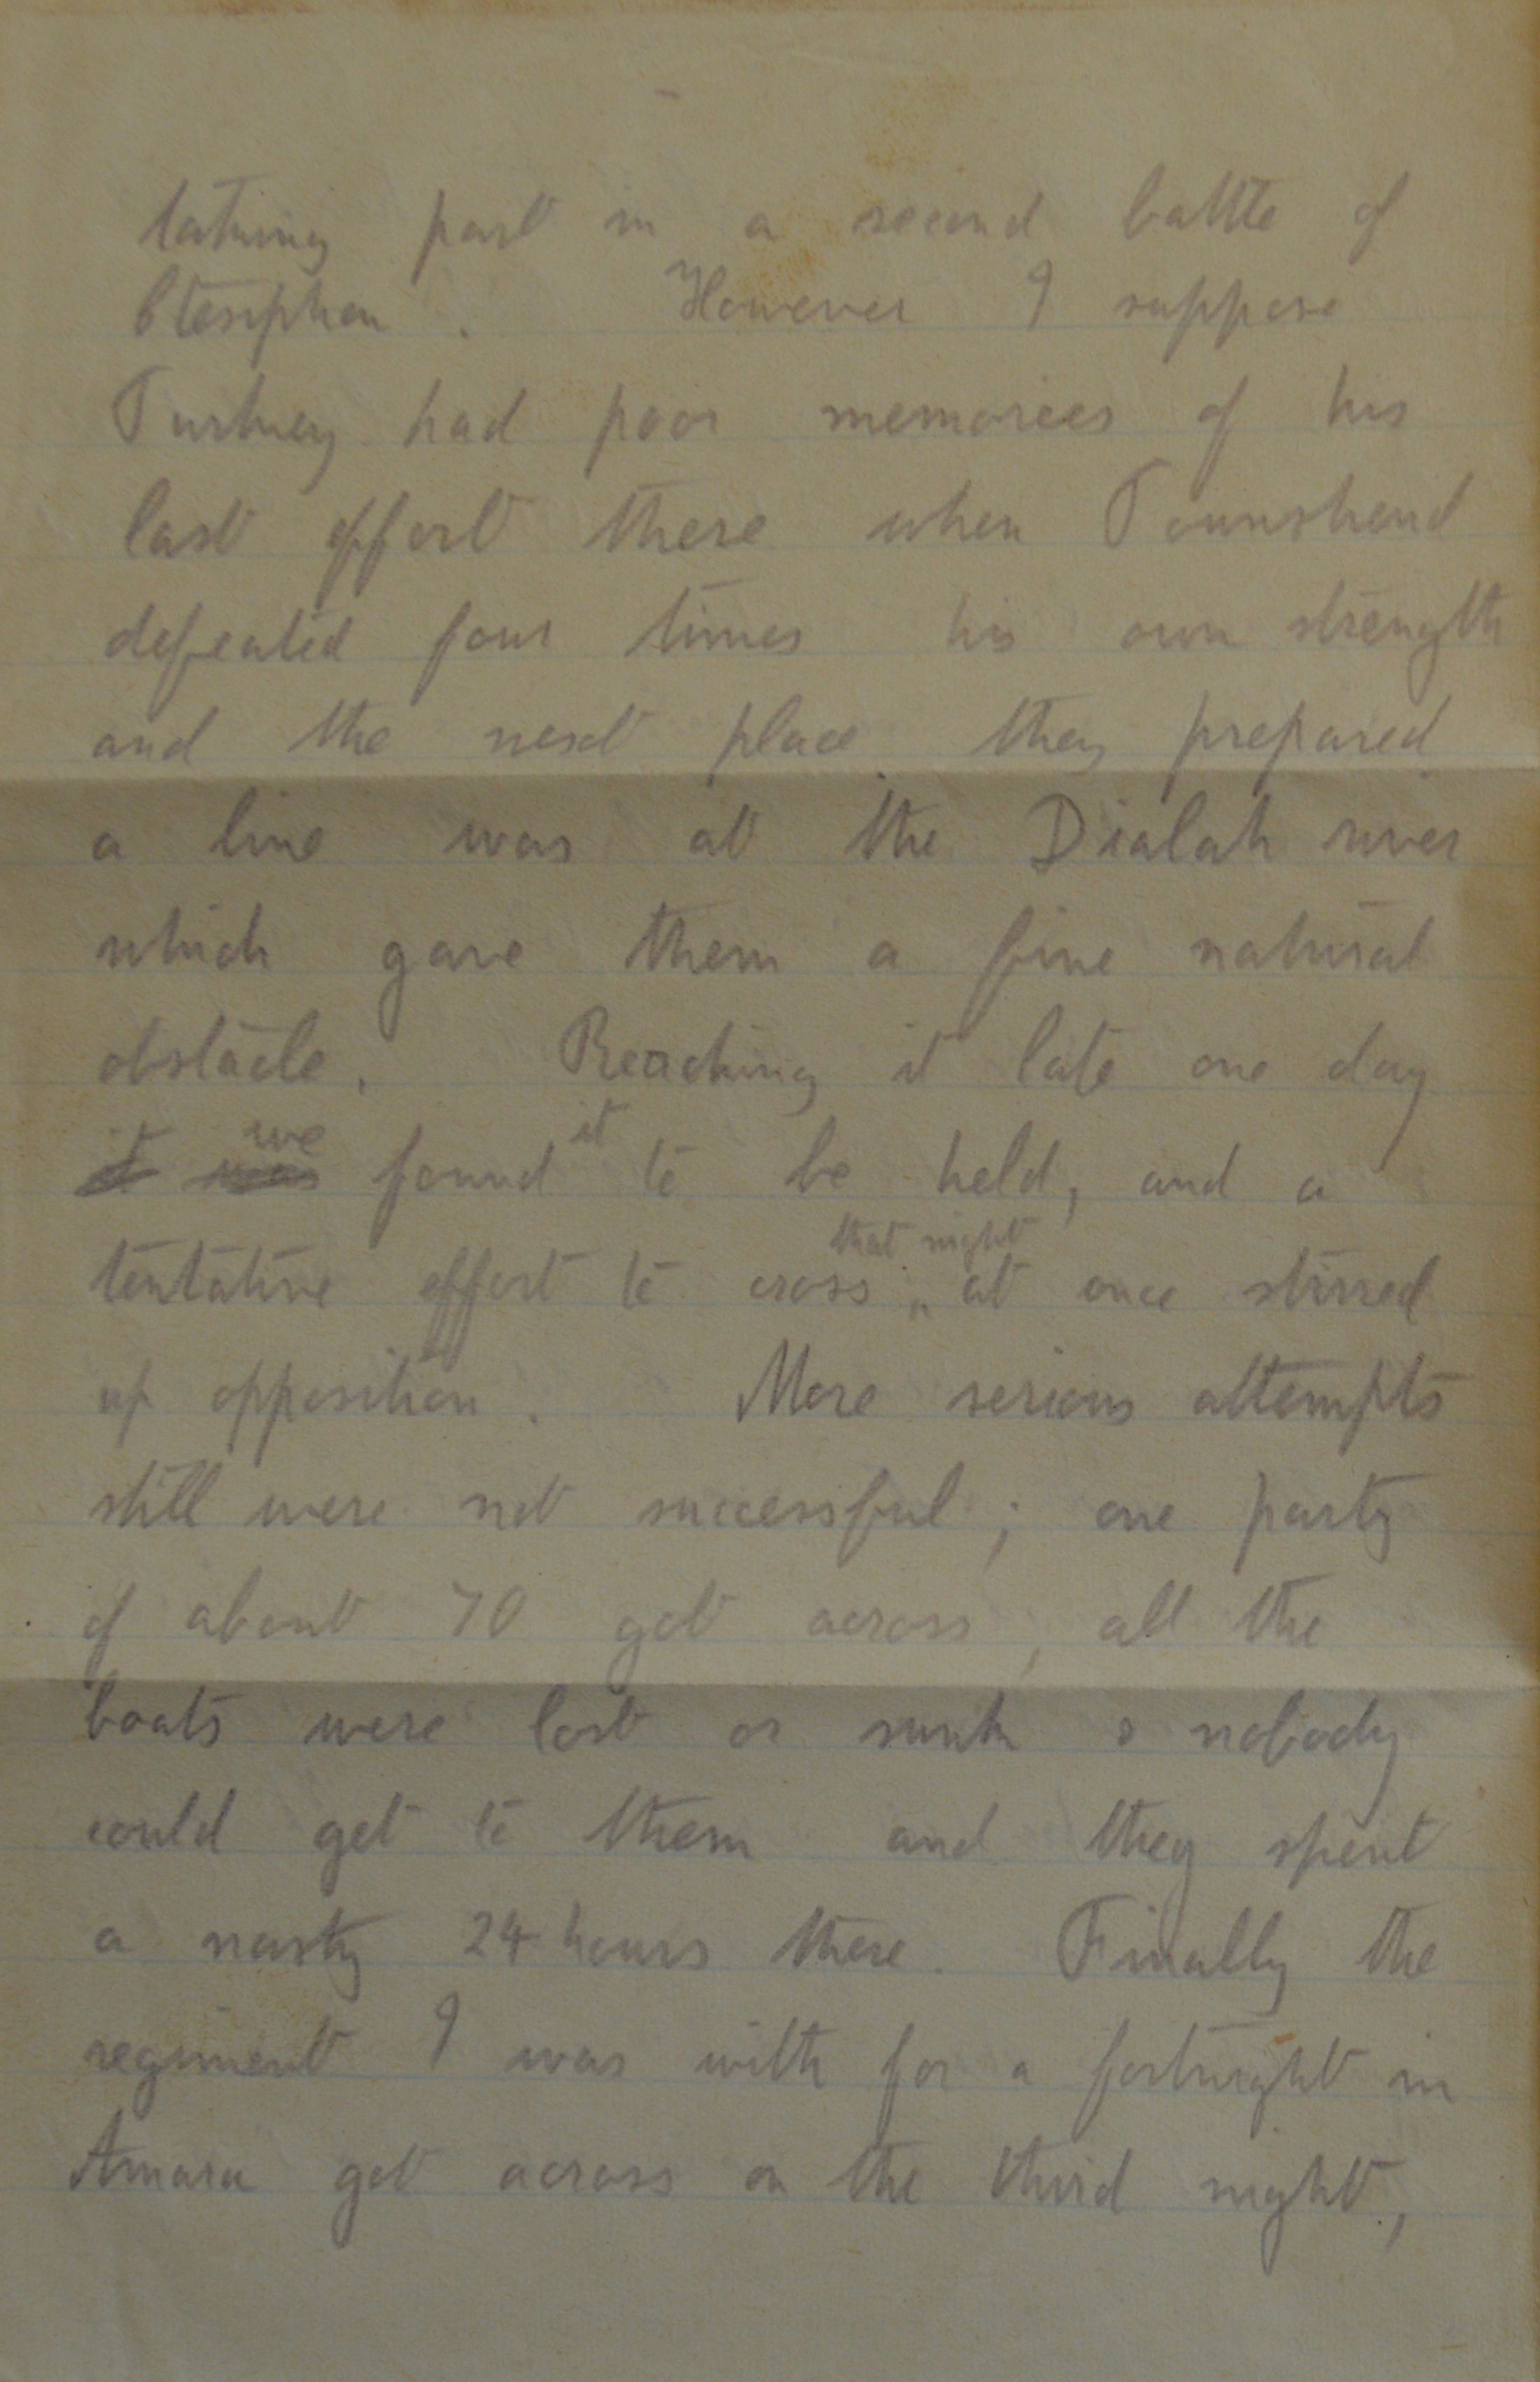 taking part in a second battle of
Ctesiphon. However I suppose
Turkey had poor memories of his
last effort there when Townshend
defeated four times his own strength
and the next place they prepared
a line was at the Dialah river
which gave them a fine natural
obstacle. Reaching it late one day
it was we found it to be held, and a
tentative effort to cross that night at once stirred
up opposition. More serious attempts
still were not successful; one party
of about 70 got across, all the
boats were lost or sunk & nobody
could get to them and they spent
a nasty 24 hours there. Finally the
regiment I was with for a fortnight in
Amara got across on the third night,